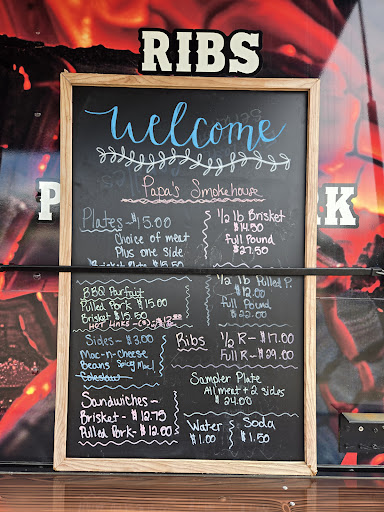 RIBS
Welcome
Papa's Smokehouse
Plates - $15.00
Choice of meat
Plus one side
Brisket Plate $15.50
1/2 lb Brisket
$14.50
Full Pound
$27.50
BBQ Parfait
Pulled Pork $15.00
Brisket $15.50
1/2 lb Pulled P.
$12.00
Full Pound
$22.00
Sides - $3.00
Mac-n-Cheese
Beans Spicy Mac!
Coleslaw
Ribs 1/2 R - $17.00
Full R - $29.00
Sampler Plate
All meat + 2 sides
$24.00
Sandwiches -
Brisket - $12.75
Pulled Pork - $12.00
Water
$1.00
Soda
$1.50